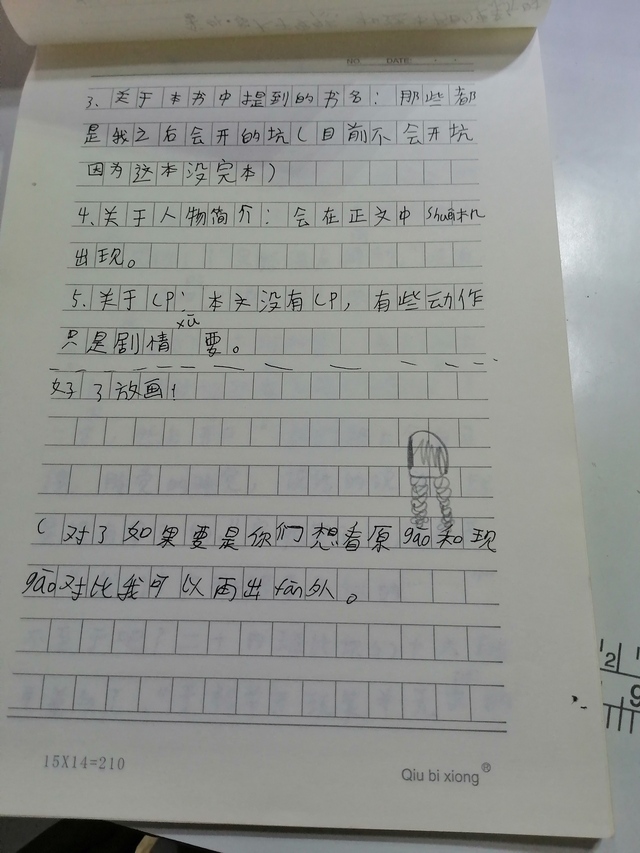 NO. DATE
3、关于本书中提到的书名：那些都
是我之后会开的坑（目前不会开坑
因为这本没完本）
4、关于人物简介：会在正文中shuā机
出现。
5、关于CP：本文没有CP，有些动作
只是剧情xū要。
好了放画！
（对了如果要是你们想看原gǎo和现
gǎo对比我可以再出fān外。
15X14=210
Qiu bi xiong®
12
9